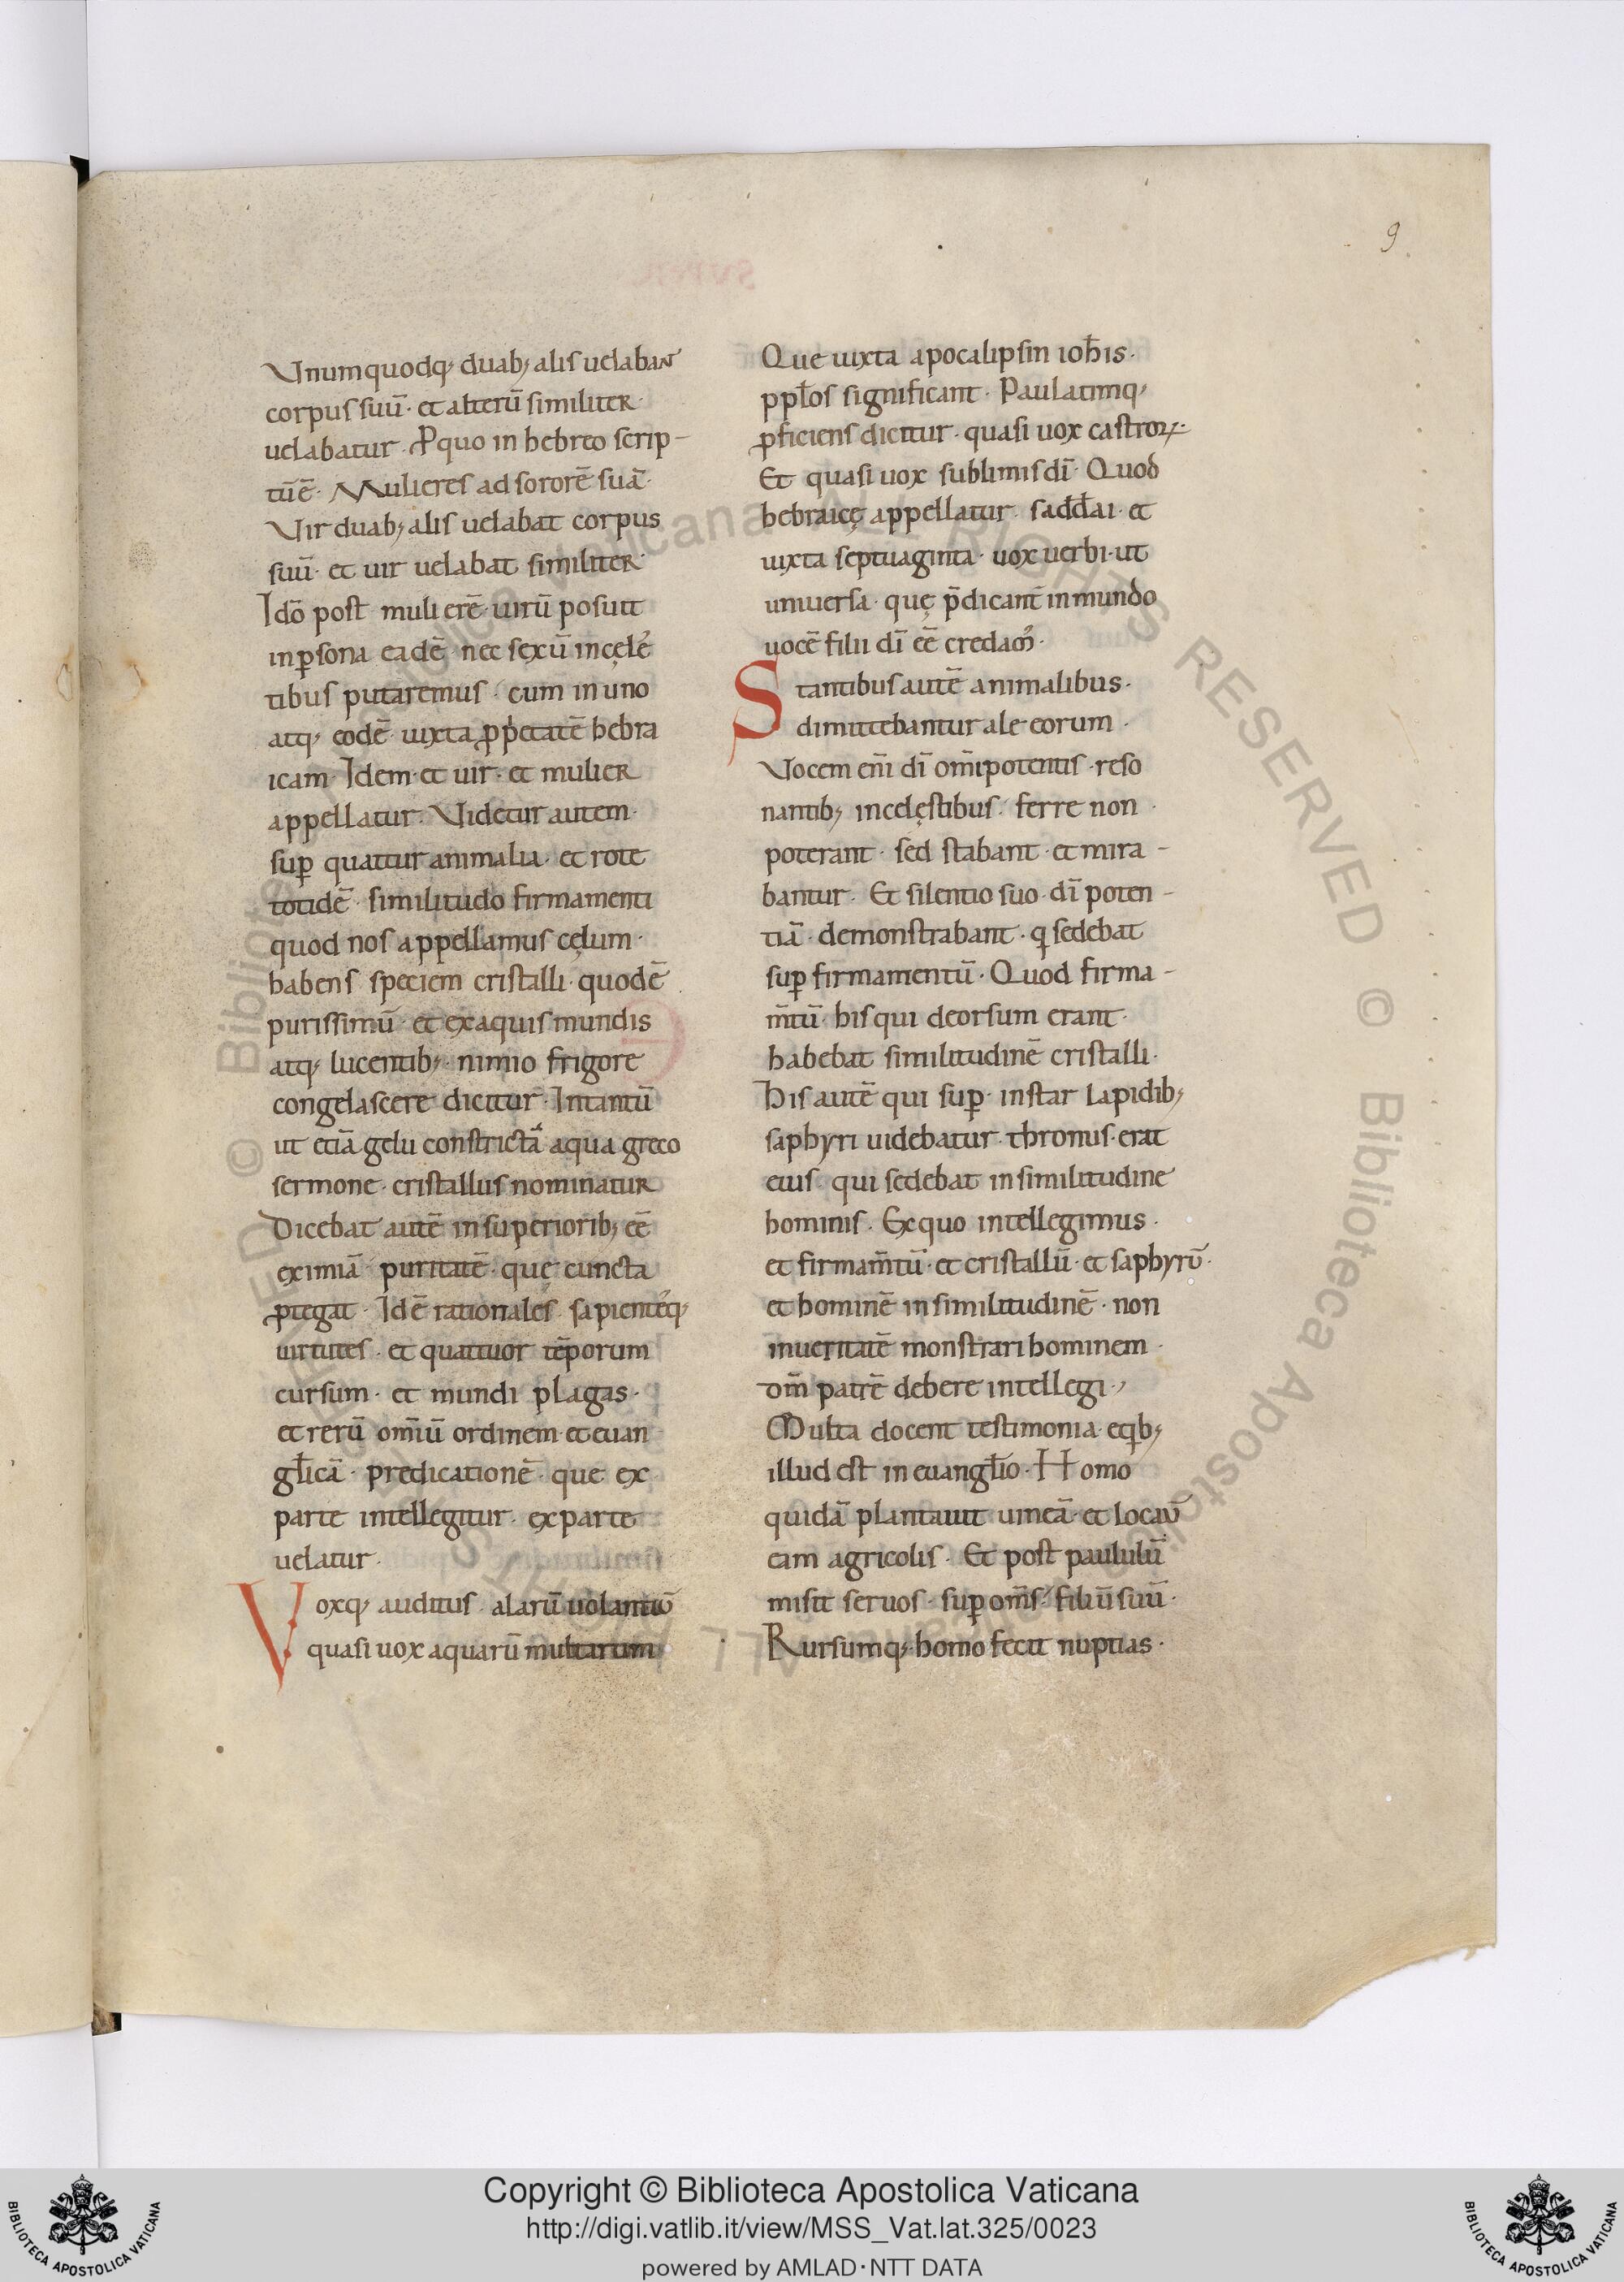 9
Unumquodq; duab; alis uelabant
corpus suū· et alterū similiter·
uelabatur· P quo in hebreo scrip-
tū ē· Mulieres ad sororē suā·
Vir duab; alis uelabat corpus
suū· et uir uelabat similiter·
Idō post mulierē uirū posuit
in p̱sona eadē· nec sexū in cęles
tibus putaremus· cum in uno
atq; eodē iuxta ꝓp̱etatē hebra
icam· Idem et uir· et mulier
appellatur· Videtur autem·
sup̱ quattur animalia· et rote
totidē· similitudo firmamenti
quod nos appellamus cęlum·
habens speciem cristalli· quod ē
purissimū· et ex aquis mundis
atq; lucentib;· nimio frigore
congelascere dicitur· Intantū
ut etiā gelu constricta aqua greco
sermone· cristallus nominatur
Dicebat autē in superiorib; eē
eximiā puritatē· quę cuncta
ꝓtegat· Idē rationales sapientesq;
uirtutes· et quattuor tēporum
cursum· et mundi plagas·
et rerū om̄iū ordinem et euan
gl̄icā· predicationē· que ex
parte intellegitur· ex parte
uelatur·
Voxq; auditus· alarū uolantiū
quasi uox aquarū multarum
Que iuxta apocalipsin ioh̄is·
ppl̄os significant· Paulatimq;
ꝓficiens dicitur· quasi uox castroꝝ·
Et quasi uox sublimis dī· Quod
hebraicę appellatur· saddai· et
iuxta septuaginta· uox uerbi· ut
uniuersa· quę p̄dicant̄ in mundo
uocē filii dī eē credam᾽·
Stantibus autē animalibus·
dimittebantur ale eorum·
Vocem eni̅ dī om̄ipotentis· reso
nantib; in celęstibus· ferre non
poterant· sed stabant· et mira-
bantur· Et silentio suo· dī poten-
tiā· demonstrabant· q̇ sedebat
sup̱ firmamentū· Quod firma-
m̄tū· his qui deorsum erant·
habebat similitudinē cristalli·
His autē qui sup̱· instar lapidib;
saphyri uidebatur· thronus· erat
eius· qui sedebat in similitudine
hominis· Ex quo intellegimus·
et firmam̄tū· et cristallū· et saphyrū·
et hominē in similitudinē· non
in ueritatē monstrari hominem·
om̄ patrē debere intellegi·
Multa docent testimonia· e q̇b;
illud est in euangl̄io· Homo
quidā plantauit uineā· et locau̅
eam agricolis· Et post paululū
misit seruos· sup̱ om̄s· filiū suū·
Rursumq; homo fecit nuptias·
Copyright © Biblioteca Apostolica Vaticana
http://digi.vatlib.it/view/MSS_Vat.lat.325/0023
powered by AMLAD·NTT DATA
BIBLIOTECA APOSTOLICA VATICANA
BIBLIOTECA APOSTOLICA VATICANA